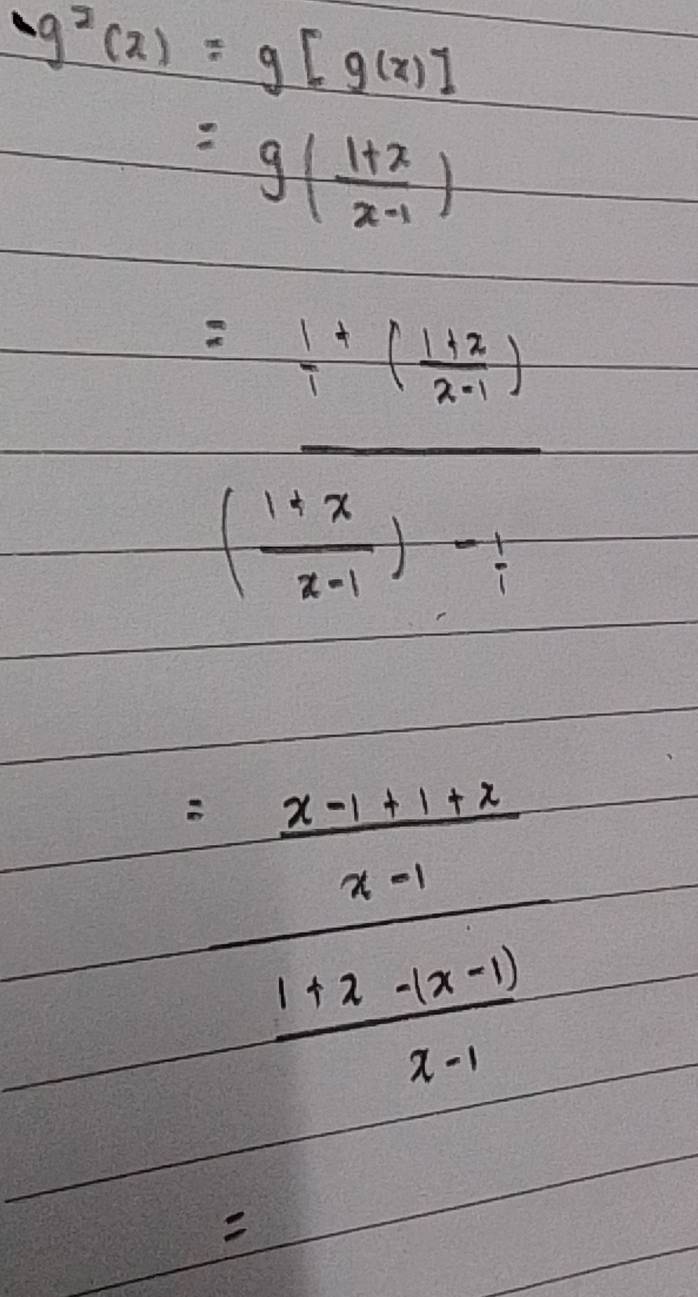 g²(x) = g[g(x)]
= g((1+x)/(x-1))
= (1/1 + ((1+x)/(x-1))) / (((1+x)/(x-1)) - 1/1)
= ((x-1+1+x)/(x-1)) / ((1+x-(x-1))/(x-1))
=